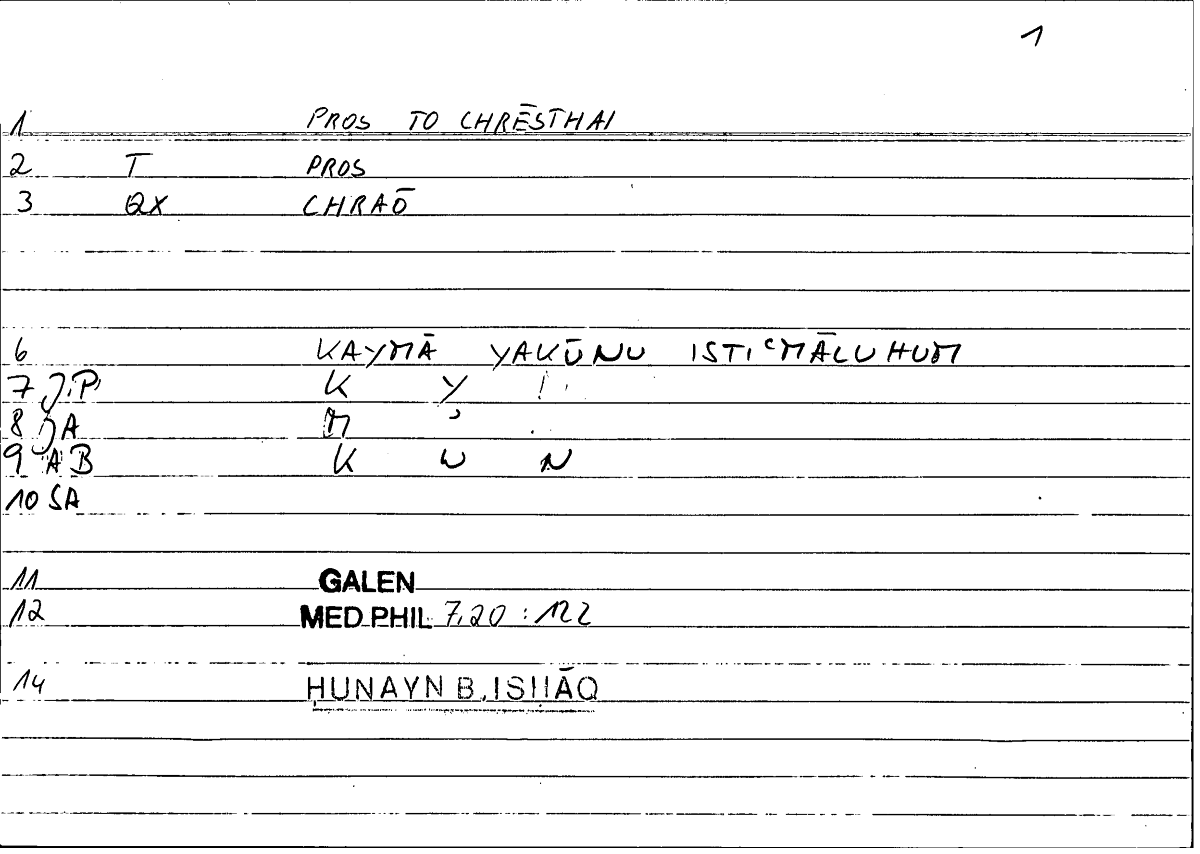 1
1 PROS TO CHRĒSTHAI
2 T PROS
3 QX CHRAŌ
6 KAYMĀ YAKŪNU ISTIᶜMĀLUHUM
7 J.P. K Y
8 JA M ʾ
9 AB K W N
10 SA
11 GALEN
12 MED PHIL 7,20 : 122
14 ḤUNAYN B. ISḤĀQ